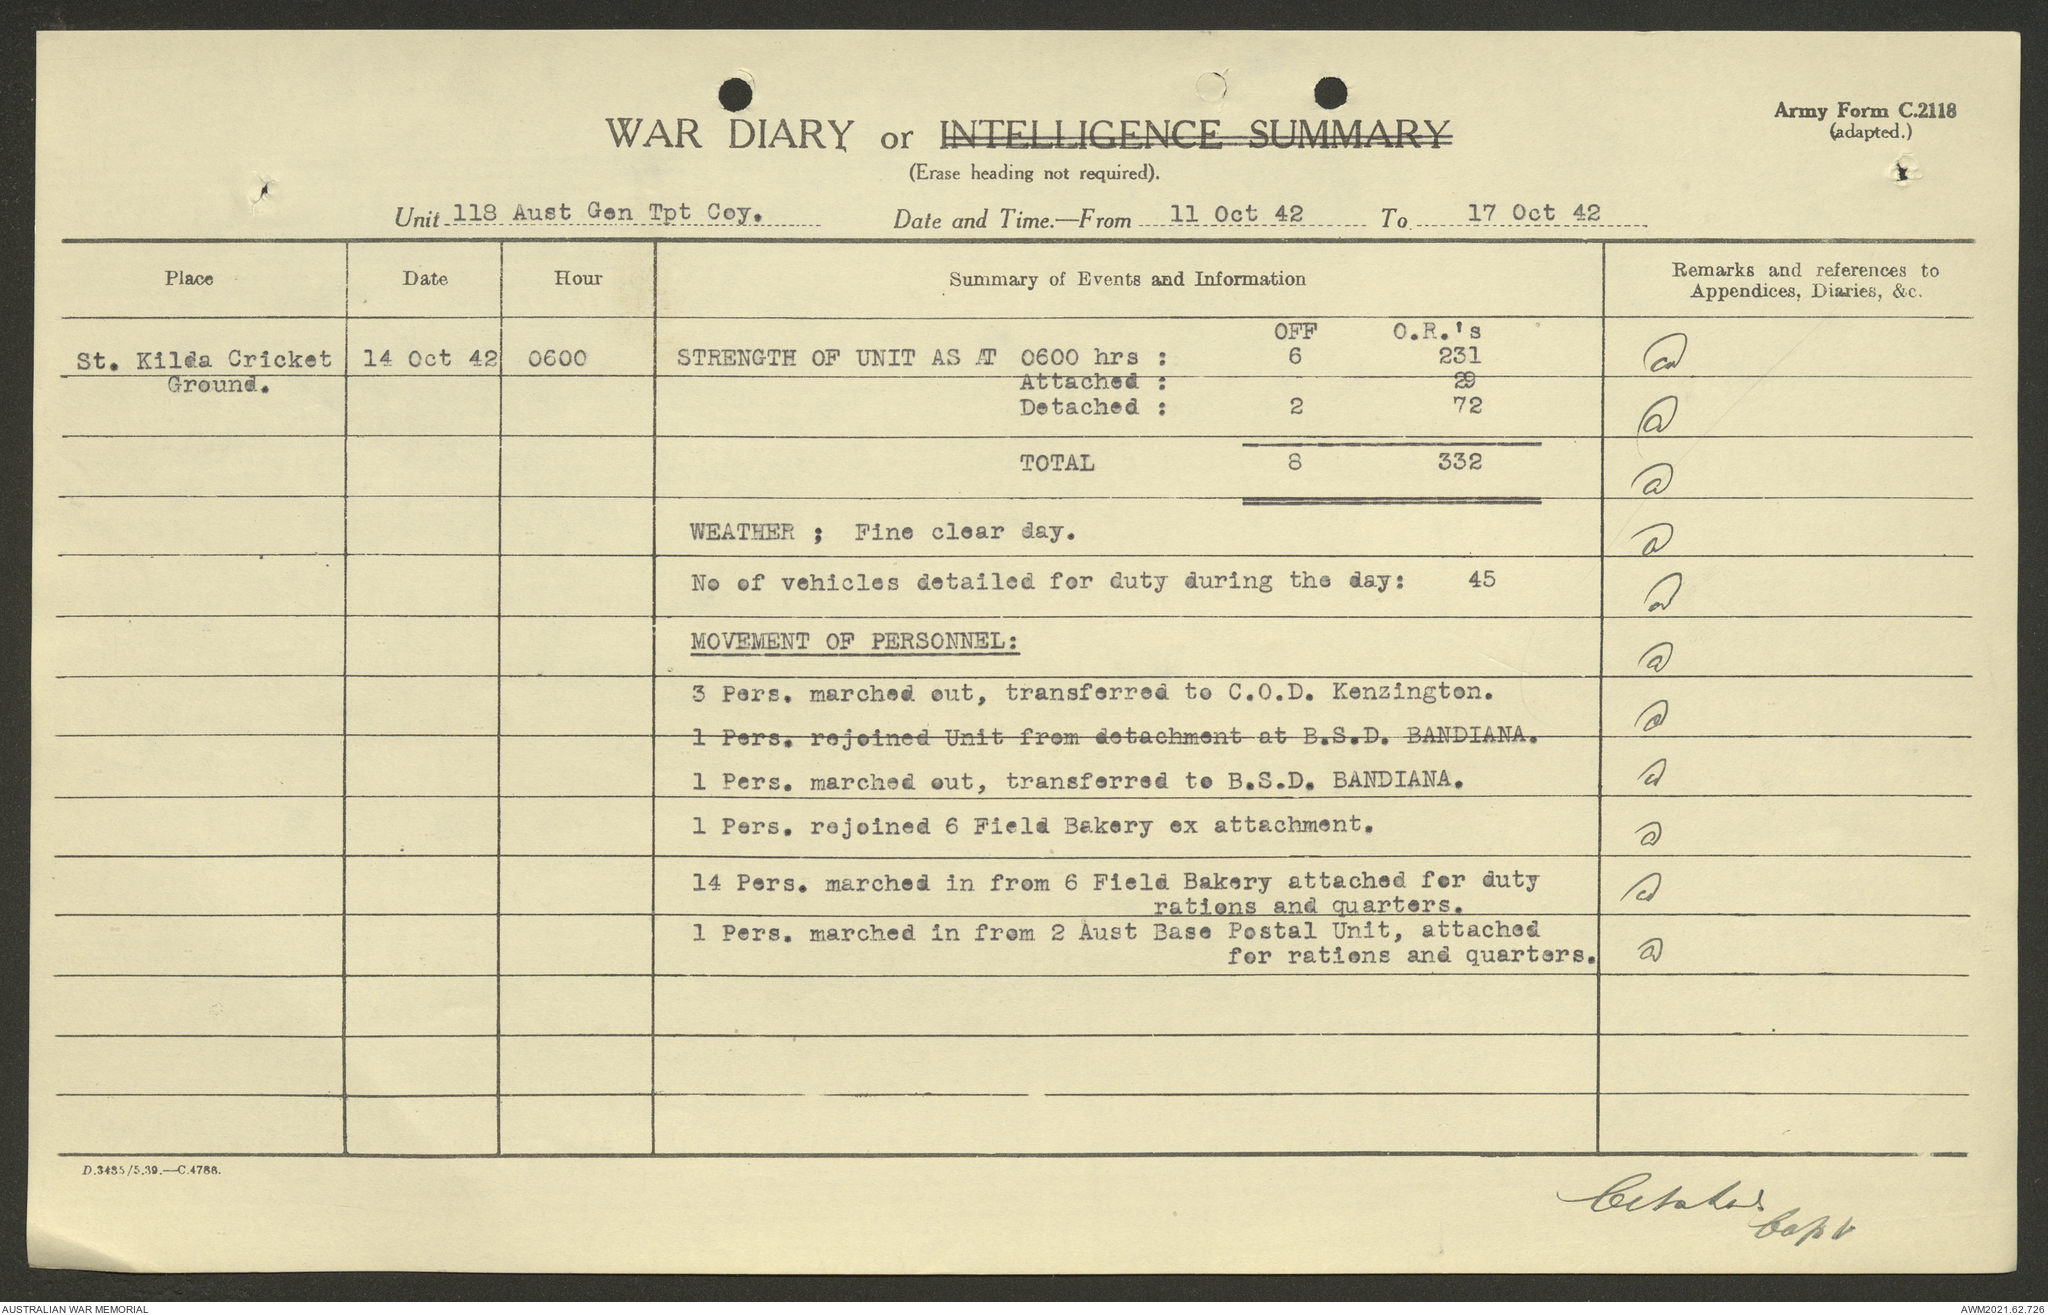 Army Form C.2118
(adapted.)
WAR DIARY or INTELLIGENCE SUMMARY
(Erase heading not required).
Unit 118 Aust Gen Tpt Coy. Date and Time.—From 11 Oct 42 To 17 Oct 42
Place Date Hour Summary of Events and Information Remarks and references to
Appendices, Diaries, &c.
OFF O.R.'s
St. Kilda Cricket 14 Oct 42 0600 STRENGTH OF UNIT AS AT 0600 hrs : 6 231
Ground. Attached : 29
Detached : 2 72
TOTAL 8 332
WEATHER ; Fine clear day.
No of vehicles detailed for duty during the day: 45
MOVEMENT OF PERSONNEL:
3 Pers. marched out, transferred to C.O.D. Kenzington.
1 Pers. rejoined Unit from detachment at B.S.D. BANDIANA.
1 Pers. marched out, transferred to B.S.D. BANDIANA.
1 Pers. rejoined 6 Field Bakery ex attachment.
14 Pers. marched in from 6 Field Bakery attached for duty
rations and quarters.
1 Pers. marched in from 2 Aust Base Postal Unit, attached
for rations and quarters.
D.3485/5.39.—C.4788.
Capt
AUSTRALIAN WAR MEMORIAL AWM2021.62.726